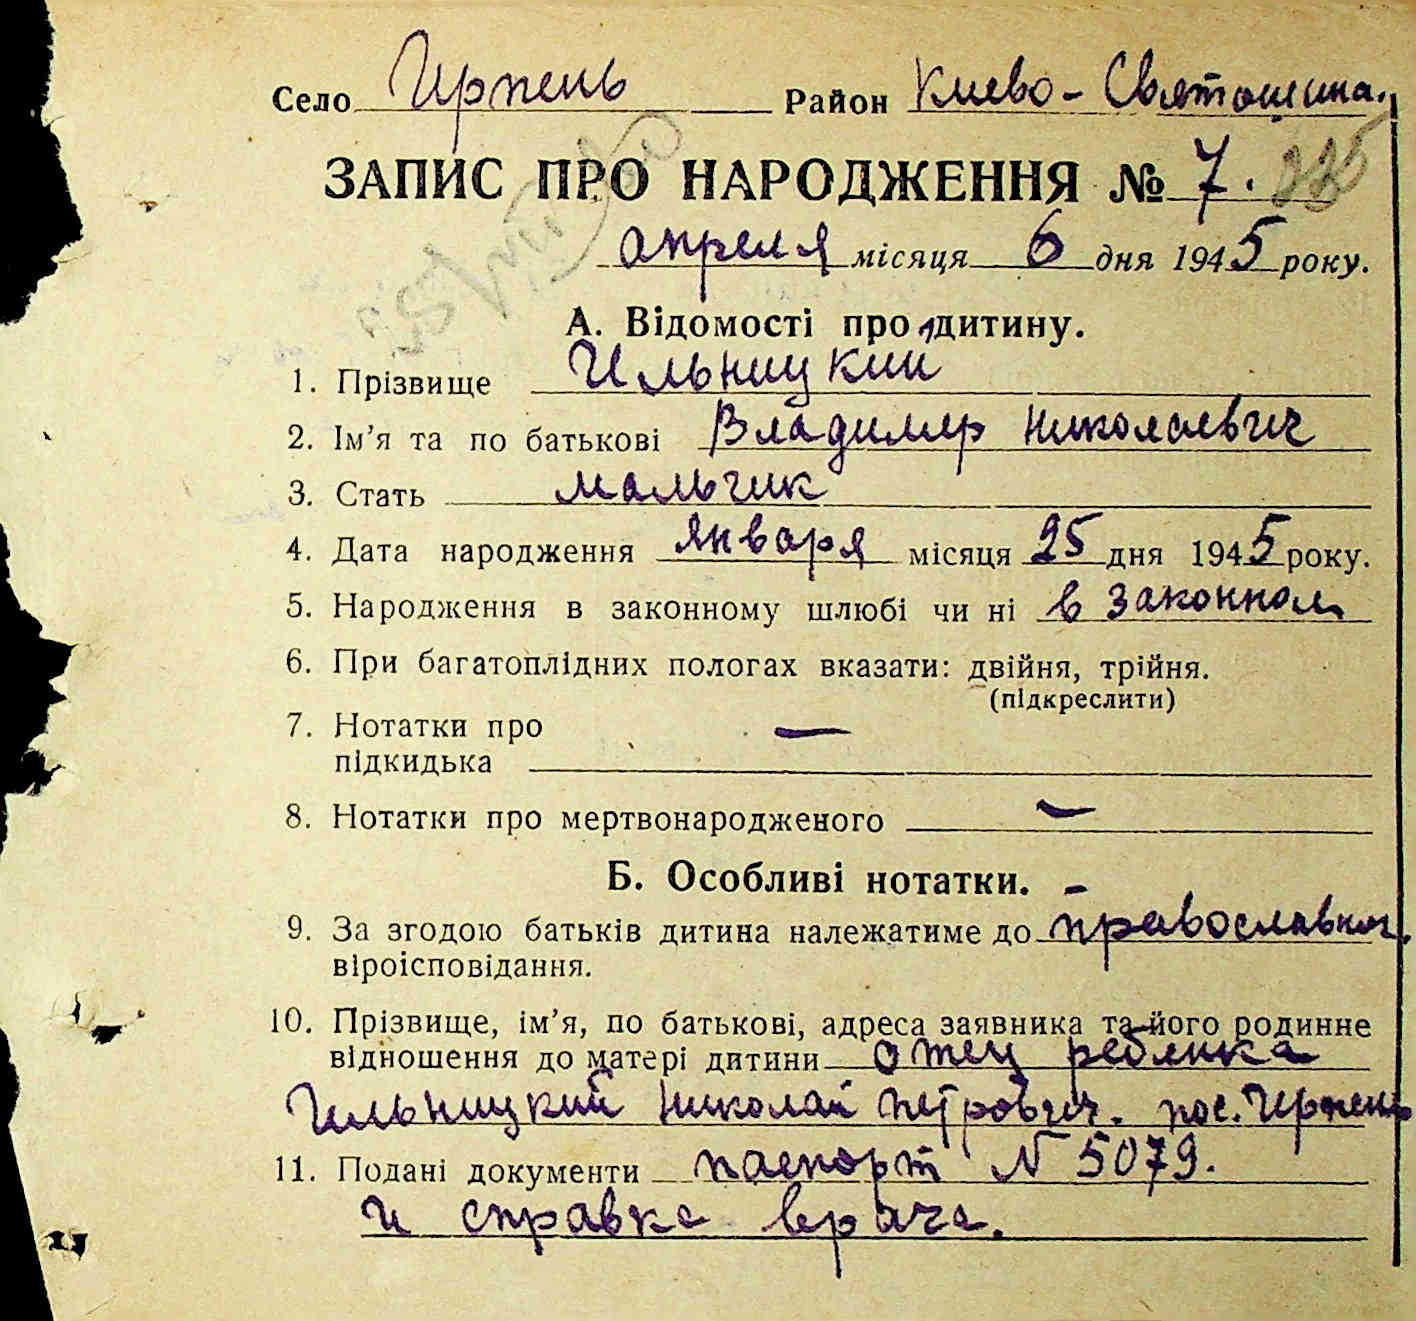 Село Ирпень Район Киево-Святошина.
ЗАПИС ПРО НАРОДЖЕННЯ № 7.
апреля місяця 6 дня 1945 року.
А. Відомості про дитину.
1. Прізвище Ильницкий
2. Ім'я та по батькові Владимир Николаевич
3. Стать мальчик
4. Дата народження января місяця 25 дня 1945 року.
5. Народження в законному шлюбі чи ні в законном
6. При багатоплідних пологах вказати: двійня, трійня.
(підкреслити)
7. Нотатки про —
підкидька
8. Нотатки про мертвонародженого —
Б. Особливі нотатки. -
9. За згодою батьків дитина належатиме до православног.
віроісповідання.
10. Прізвище, ім'я, по батькові, адреса заявника та його родинне
відношення до матері дитини отец ребенка
Ильницкий Николай Петрович. пос. Ирпень
11. Подані документи паспорт N 5079.
и справка врача.